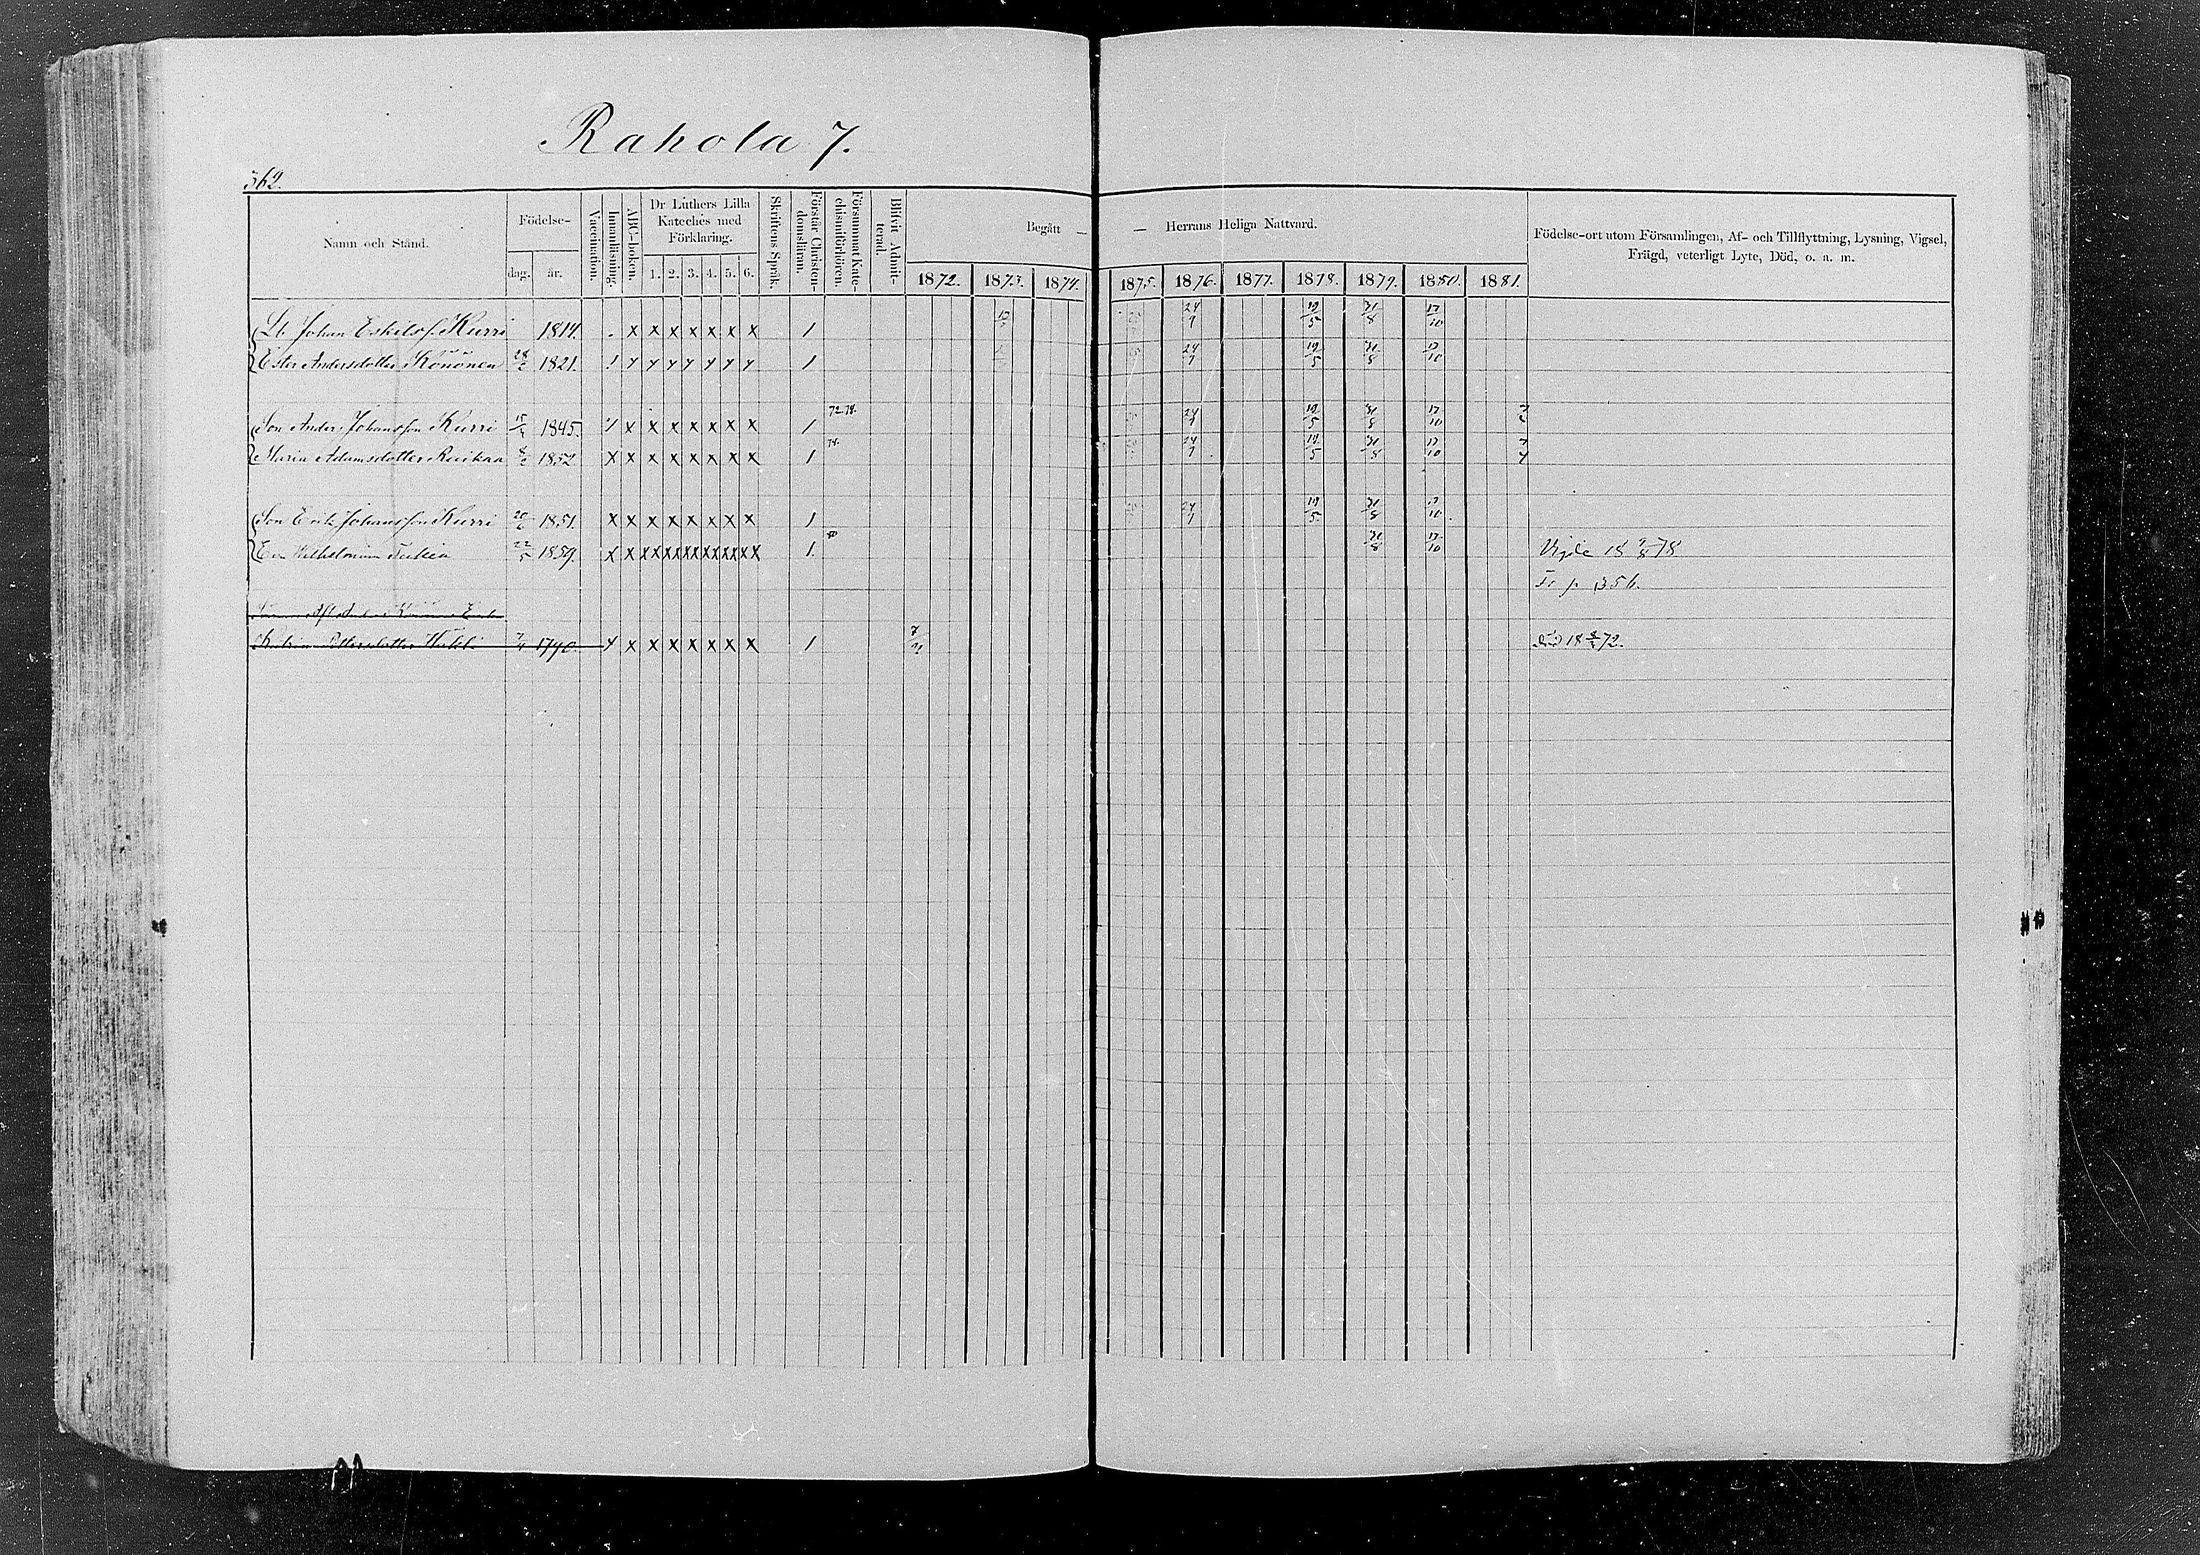 Rahola 7.
562.
Namn och Stånd.
Födelse-
dag. år.
Vaccination.
Innanläsning.
ABC-boken.
Dr Luthers Lilla
Kateches med
Förklaring.
1. 2. 3. 4. 5. 6.
Skriftens Språk.
Förstår Christen-
domsläran.
Försummat Kate-
chismiförhören.
Blifvit Admit-
terad.
Begått — — Herrans Heliga Nattvard.
1872. 1873. 1874. 1875. 1876. 1877. 1878. 1879. 1880. 1881.
Födelse-ort utom Församlingen, Af- och Tillflyttning, Lysning, Vigsel,
Frägd, veterligt Lyte, Död, o. a. m.
Johan Eskilss. Kurri 1814. x x x x x x x 1 24 19/5 31/8 17/10
Ester Andersdotter Könönen 1821. 1 24 19/5 31/8 17/10
72. 74.
Son Anders Johansson Kurri 1845. x x x x x x x 1 24 19/5 31/8 17/10
74.
Maria Adamsdotter 1852 x x x x x x x x 1 24 19/5 31/8 17/10
Son Erik Johansson Kurri 1851. x x x x x x x x 1 24 19/5 31/8 17/10
Eva 22/5 1859. 1. 31/8 17/10 78
Fr p. 356.
Pettersdotter 1790. x x x x x x x 1 18 72.